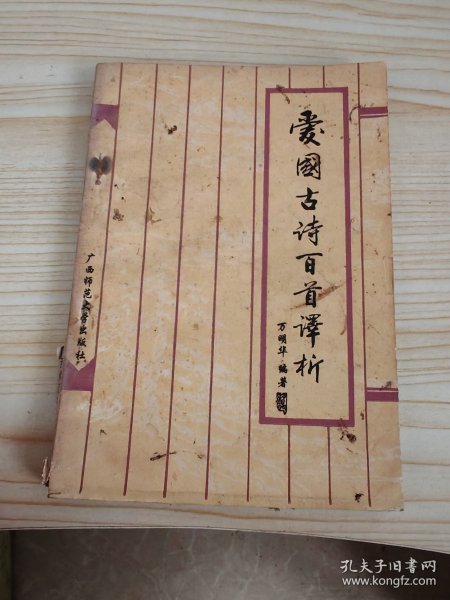 爱國古诗百首譯析
万明华 编著
广西师范大学出版社
孔夫子旧书网
www.kongfz.com